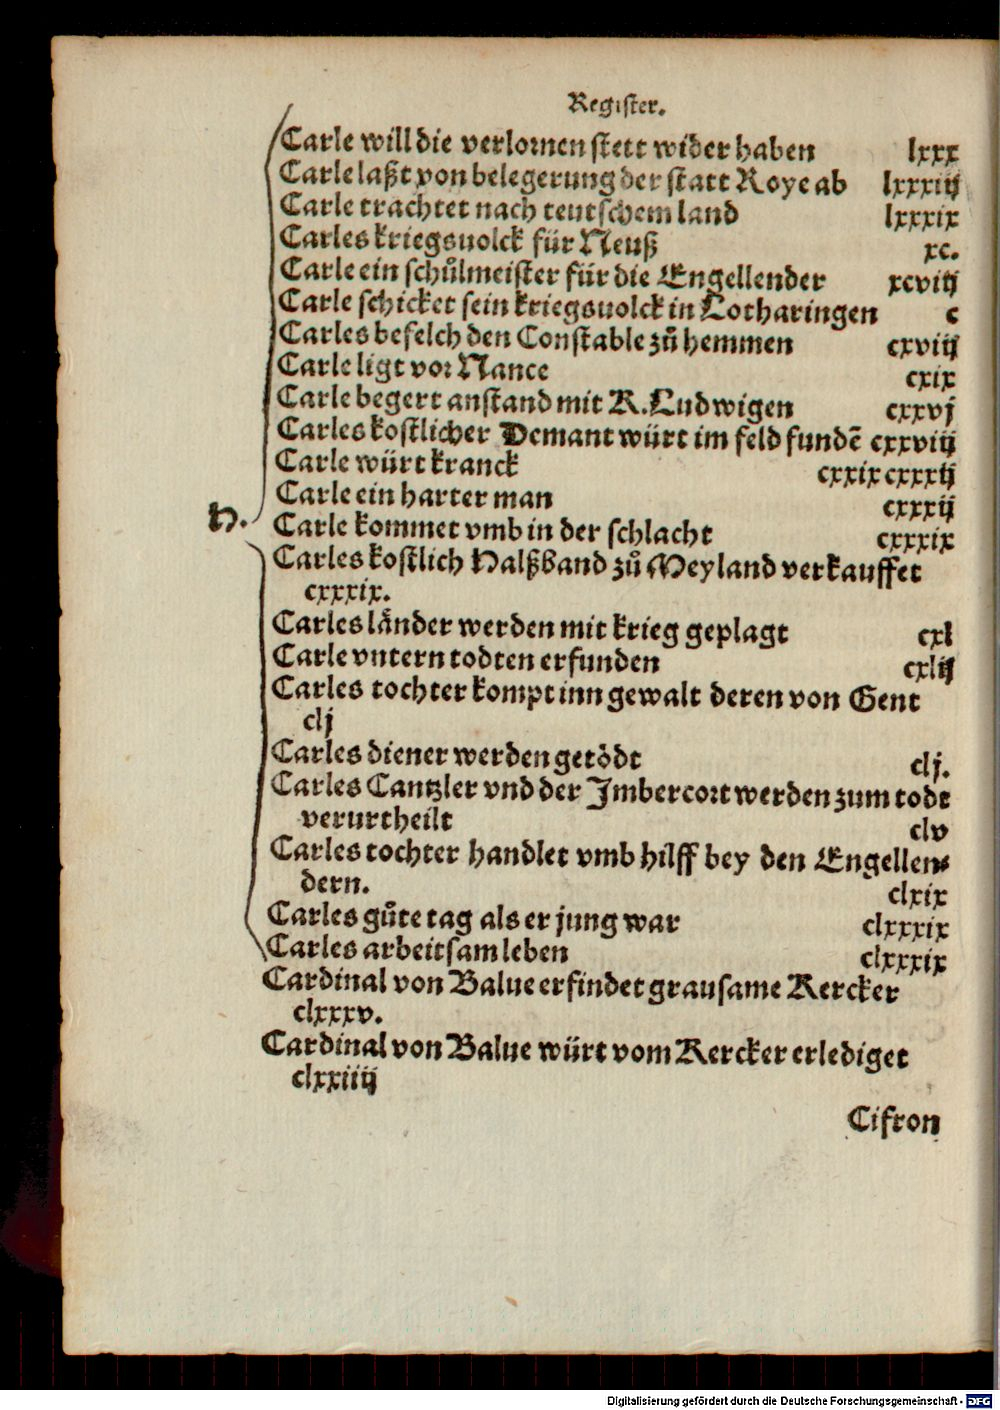 Register.
Carle will die verlornen stett wider haben lxxx
Carle laßt von belegerung der statt Roye ab lxxxiij
Carle trachtet nach teutschem land lxxxix
Carles kriegsuolck für Neuß xc.
Carle ein schůlmeister für die Engellender xcviij
Carle schicket sein kriegsuolck in Lotharingen c
Carles befelch den Constable zů hemmen cxviij
Carle ligt vor Nance cxix
Carle begert anstand mit K. Ludwigen cxxvj
Carles kostlicher Demant würt im feld fundē cxxviij
Carle würt kranck cxxix cxxxij
Carle ein harter man cxxxij
H.
Carle kommet vmb in der schlacht cxxxix
Carles kostlich Halßband zů Meyland verkauffet
cxxxix.
Carles länder werden mit krieg geplagt cxl
Carle vntern todten erfunden cxlij
Carles tochter kompt inn gewalt deren von Gent
clj
Carles diener werden getödt clj.
Carles Cantzler vnd der Jmbercort werden zum todt
verurtheilt clv
Carles tochter handlet vmb hilff bey den Engellen⸗
dern. clxix
Carles gůte tag als er jung war clxxxix
Carles arbeitsam leben clxxxix
Cardinal von Balue erfindet grausame Kercker
clxxxv.
Cardinal von Balue würt vom Kercker erlediget
clxxiiij
Cifron
Digitalisierung gefördert durch die Deutsche Forschungsgemeinschaft - DFG